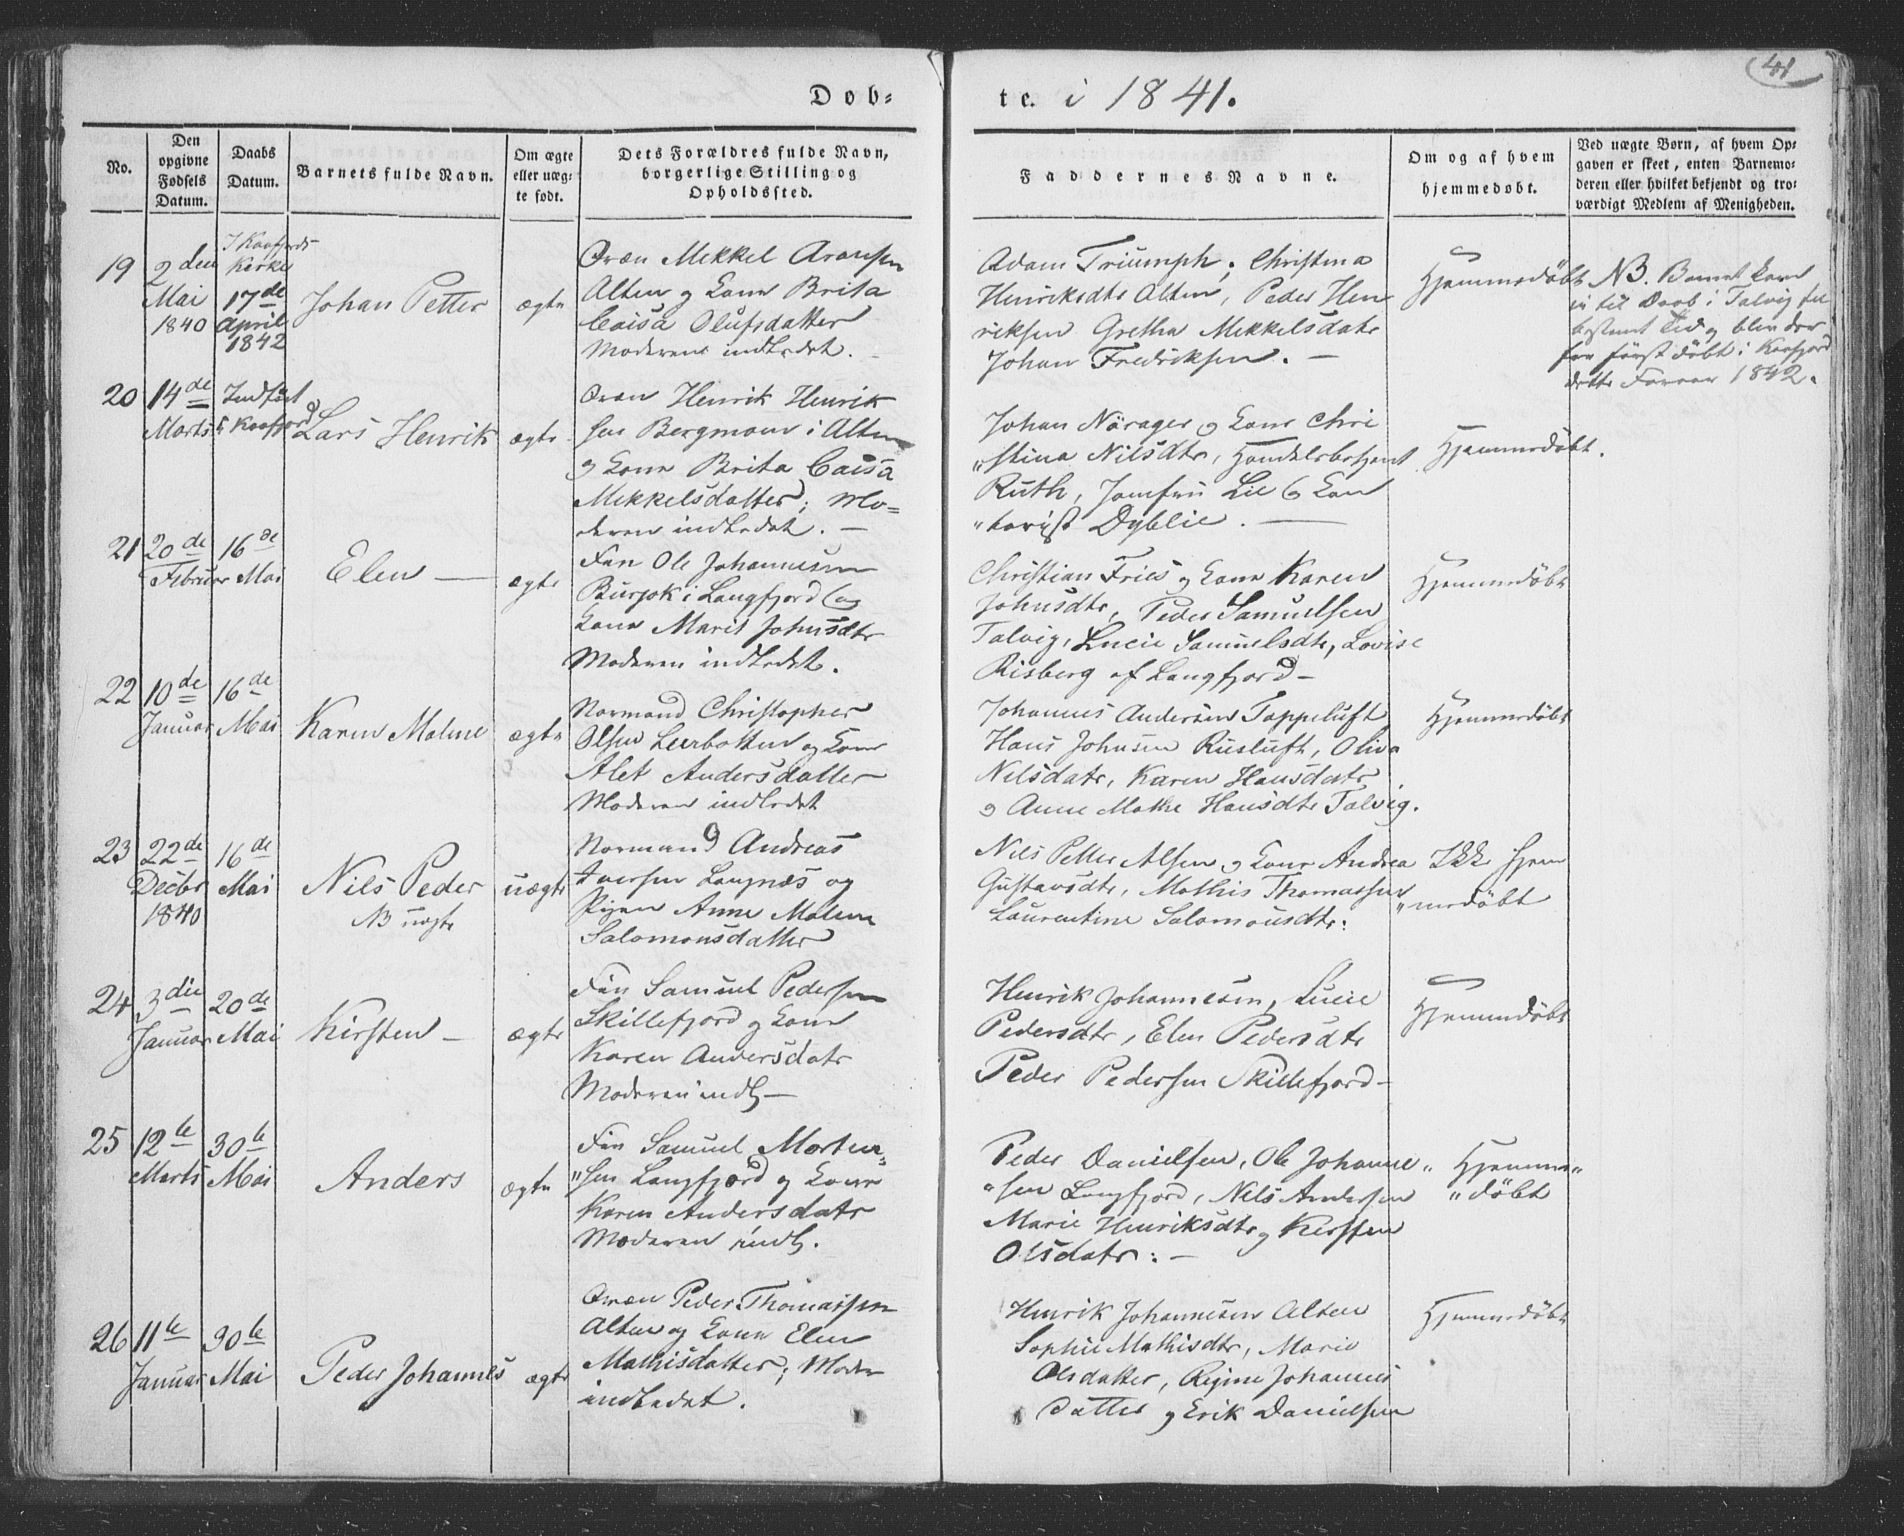 41
Døb-
te. i 1841.
No.
Den opgivne Fødsels Datum.
Daabs Datum.
Barnets fulde Navn.
Om ægte eller uæg-te født.
Dets Forældres fulde Navn, borgerlige Stilling og Opholdssted.
Faddernes Navne.
Om og af hvem hjemmedøbt.
Ved uægte Børn, af hvem Op-
gaven er skeet, enten Barnemo-
deren eller hvilket bekjendt og tro-
værdigt Medlem af Menigheden.
19
2den
Mai
1840
I Kaafjords
Kirke
17de
April
1842
Johan Petter
ægte
Qvæn Mekkel Aronsen
Alten og Kone Brita
Caisa Olufsdatter
Moderen indledet. —
Adam Triumph, Christina
Henriksdtr Alten, Peder Hen
riksen Gretha Mekkelsdatr
Johan Fredriksen. —
Hjemmedøbt
NB. Barnet kom
ei til Daab i Talvig til
bestemt Tid og blev der
for først døbt i Kaafjord
dette Foraar 1842.
20
14de
Marts
Indført
i Kaafjord
Lars Henrik
ægte
Qvæn Henrik Henrik
sen Bergmann i Alten
og Kone Brita Caisa
Mekkelsdatter; Mo-
deren indledet. —
Johan Nårager og Kone Chri
"stina Nilsdtr, Handelsbetjent
Ruth, Jomfru Lie og Kon
"torist Dyblie. —
Hjemmedøbt.
21
20de
Februar
16de
Mai
Elen —
ægte
Fin Ole Johannesen
Burjok i Langfjord og
Kone Marit Johnsdtr
Moderen indledet.
Christian Fries og Kone Karen
Johnsdtr, Peder Samuelsen
Talvig, Lucie Samuelsdtr, Lovise
Risberg af Langfjord —
Hjemmedøbt
22
10de
Januar
16de
Mai
Karen Malene
ægte
Normand Christopher
Olsen Leerbotten og Kone
Alet Andersdatter
Moderen indledet
Johannes Andersen Toppeluft
Hans Johnsen Rusluft, Oliva
Nilsdatr, Karen Hansdatr
og Anne Mathe Hansdtr Talvig.
Hjemmedøbt
23
22de
Decbr
1840
16de
Mai
Nils Peder
NB uægte
uægte
Normand Andreas
Iversen Langnæs og
Pigen Anne Malene
Salomonsdatter
Nils Petter Alsen og Kone Andrea
Gustavsdtr, Mathis Thomassen
Laurentine Salomonsdtr.
Ikke hjem
"medøbt
24
3die
Januar
20de
Mai
Kirsten —
ægte
Fin Samuel Pedersen
Skillefjord og Kone
Karen Andersdatr
Moderen indl —
Henrik Johannesen, Lucie
Pedersdtr, Elen Pedersdtr
Peder Pedersen Skillefjord —
Hjemmedøbt
25
12te
Marts
30te
Mai
Anders
ægte
Fin Samuel Morten-
"sen Langfjord og Kone
Karen Andersdatr
Moderen indl.
Peder Danielsen, Ole Johanne"
"sen Langfjord, Nils Andersen
Marie Henriksdtr og Kirsten
Olsdatr. —
Hjemme"
"døbt
26
11te
Januar
30te
Mai
Peder Johannes
ægte
Qvæn Peder Thomassen
Alten og Kone Elen
Mathisdatter; Moder
indledet.
Henrik Johannesen Alten
Sophie Mathisdtr, Marie
Olsdatter, Regine Johannes
Datter og Erik Danielsen
Hjemmedøbt